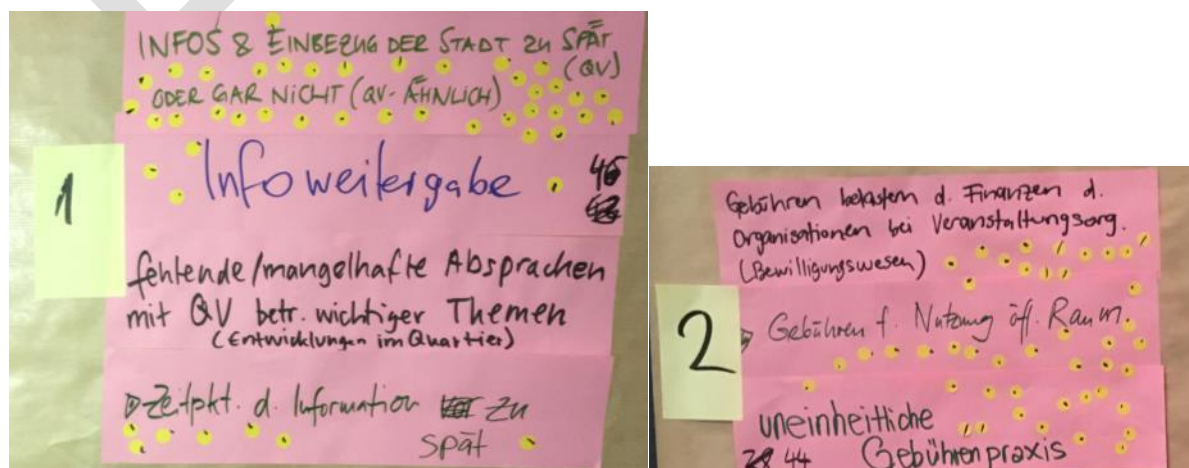 INFOS & EINBEZUG DER STADT ZU SPÄT
(QV)
ODER GAR NICHT (QV-ÄHNLICH)
1
Infoweitergabe
46
fehlende/mangelhafte Absprachen
mit QV betr. wichtiger Themen
(Entwicklungen im Quartier)
Zeitpkt. d. Information zu
spät
Gebühren belasten d. Finanzen d.
Organisationen bei Veranstaltungsorg.
(Bewilligungswesen)
2
Gebühren f. Nutzung öff. Raum.
uneinheitliche
44 Gebührenpraxis